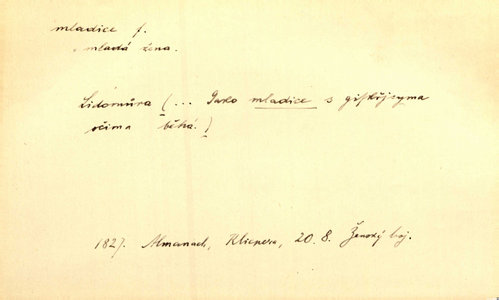 mladice f.
mladá žena.
Lidomůra (... Jako mladice s giskřjcyma
očima běhá.)
1827. Almanach, Klicpera, 20. 8. Ženský boj.